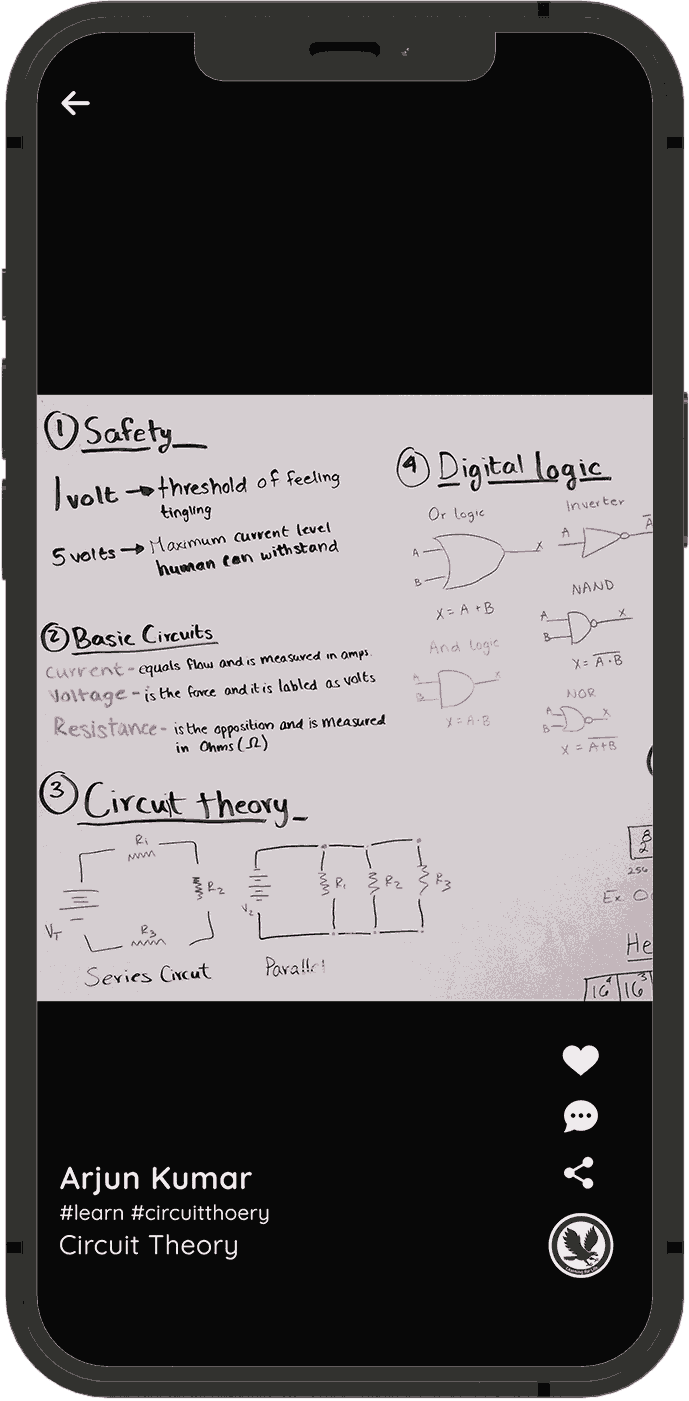 ① Safety_
1 volt → threshold of feeling
tingling
5 volts → Maximum current level
human can withstand
② Basic Circuits
Current - equals flow and is measured in amps.
Voltage - is the force and it is labled as volts
Resistance - is the opposition and is measured
in Ohms (Ω)
③ Circuit theory_
R₁
R₂
R₃
V_T
Series Circut
V₂
R₁
R₂
R₃
Parallel
④ Digital logic
Or logic
A
B
X
X = A + B
And logic
A
B
X
X = A·B
Inverter
A
A̅
NAND
A
B
X
X = \overline{A·B}
NOR
A
B
X
X = \overline{A+B}
8
2
256
Ex
He
16⁴ 16³
Arjun Kumar
#learn #circuitthoery
Circuit Theory